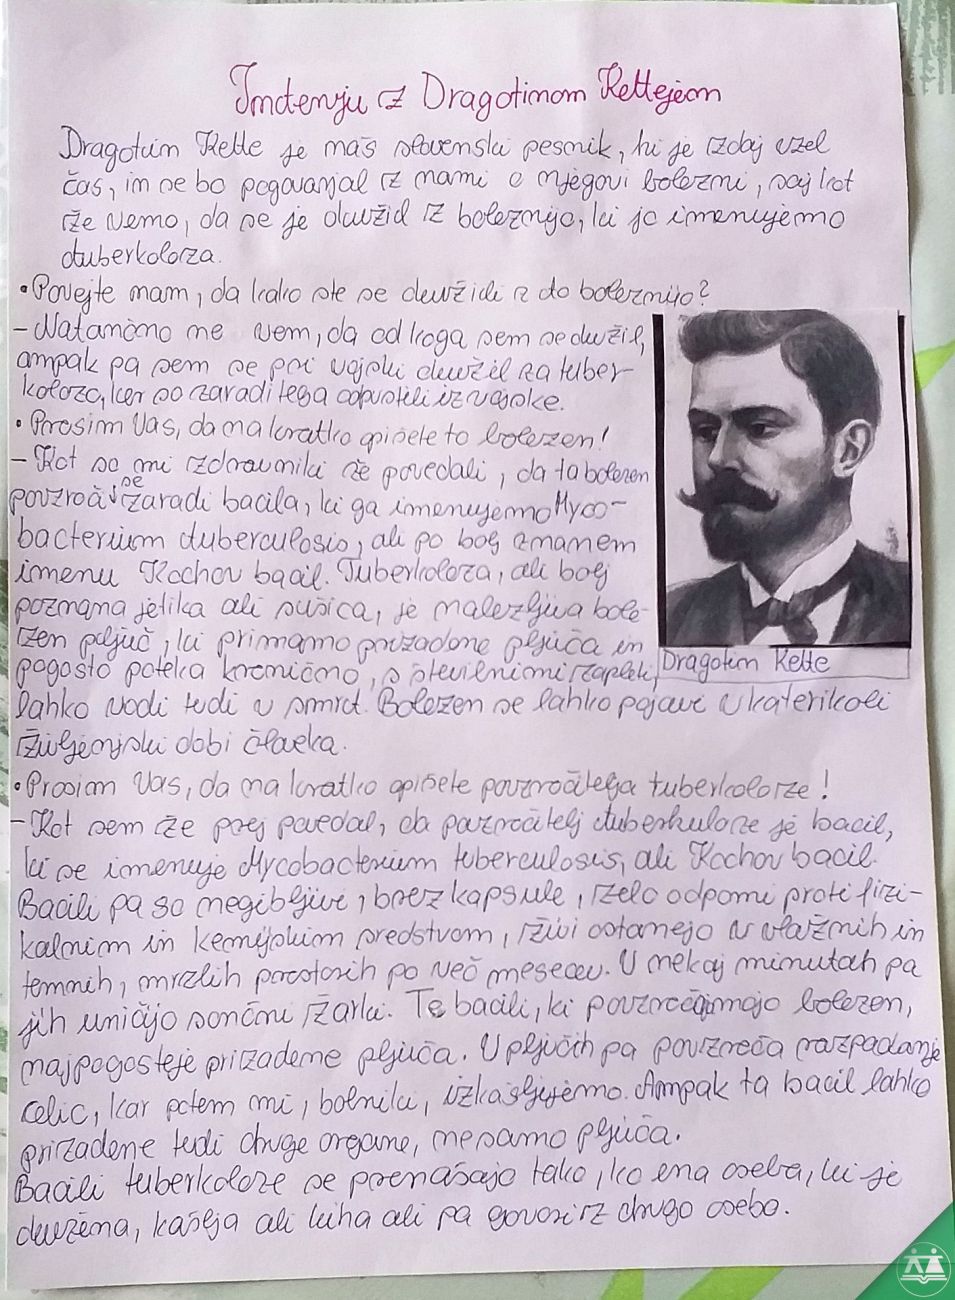 Intervju z Dragotinom Kettejem
Dragotin Kette je naš slovenski pesnik, ki je zdaj vzel
čas, in se bo pogovarjal z nami o njegovi bolezni, saj kot
že vemo, da se je okužil z boleznijo, ki jo imenujemo
tuberkoloza.
• Povejte nam, da kako ste se okužili z to boleznijo?
- Natančno ne vem, da od koga sem se okužil,
ampak pa sem se pri vojski okužil za tuber-
kolozo, ker so zaradi tega odpustili iz vojske.
• Prosim Vas, da na kratko opišete to bolezen!
- Kot so mi zdravniki že povedali, da ta bolezen
povzroči se zaradi bacila, ki ga imenujemo Myco-
bacterium tuberculosis, ali po bolj znanem
imenu Kochov bacil. Tuberkoloza, ali bolj
poznana jetika ali sušica, je nalezljiva bole-
zen pljuč, ki primarno prizadene pljuča in
pogosto poteka kronično, s številnimi zapleti,
lahko vodi tudi v smrt. Bolezen se lahko pojavi v katerikoli
življenjski dobi človeka.
Dragotin Kette
• Prosim Vas, da na kratko opišete povzročitelja tuberkoloze!
- Kot sem že prej povedal, da povzročitelj tuberkuloze je bacil,
ki se imenuje Mycobacterium tuberculosis, ali Kochov bacil.
Bacili pa so negibljivi, brez kapsule, zelo odporni proti fizi-
kalnim in kemijskim sredstvom, živi ostanejo v vlažnih in
temnih, mrzlih prostorih po več mesecev. V nekaj minutah pa
jih uničijo sončni žarki. Te bacili, ki bolezen,
najpogosteje prizadene pljuča. V pljučih pa povzroča razpadanje
celic, kar potem mi, bolniki, izkašljujemo. Ampak ta bacil lahko
prizadene tudi druge organe, ne samo pljuča.
Bacili tuberkoloze se prenašajo tako, ko ena oseba, ki je
okužena, kašlja ali kiha ali pa govori z drugo osebo.